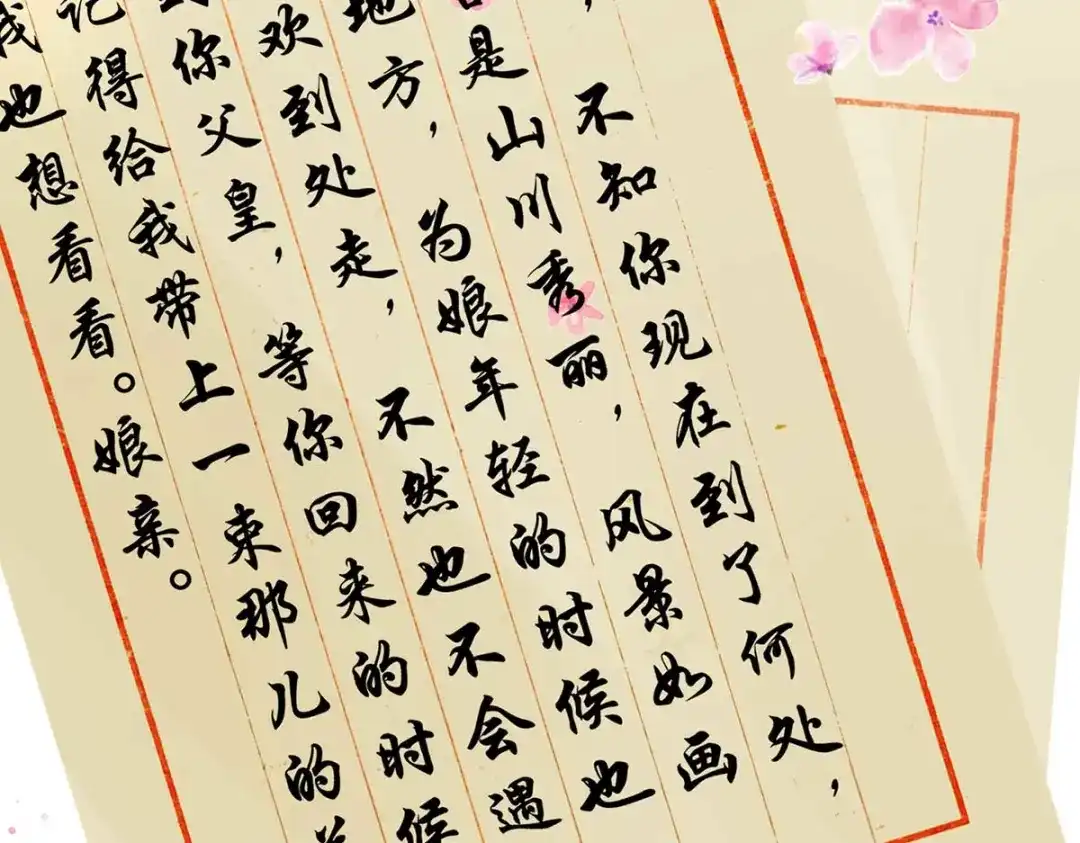 ，不知你现在到了何处，
是山川秀丽，风景如画
地方，为娘年轻的时候也
欢到处走，不然也不会遇
到你父皇，等你回来的时候
记得给我带上一束那儿的
我也想看看。娘亲。